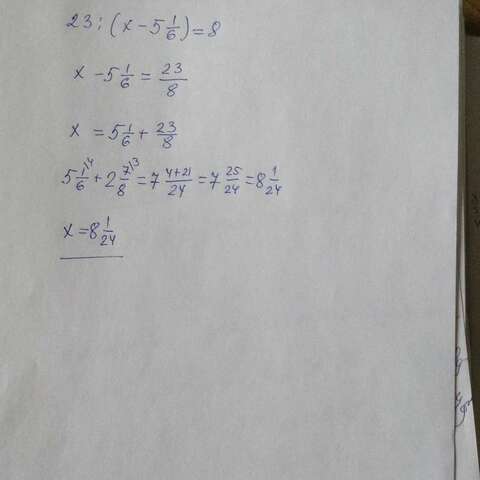 23 : (x - 5 1/6) = 8
x - 5 1/6 = 23/8
x = 5 1/6 + 23/8
5 1/6 \4 + 2 7/8 \3 = 7 4+21/24 = 7 25/24 = 8 1/24
x = 8 1/24